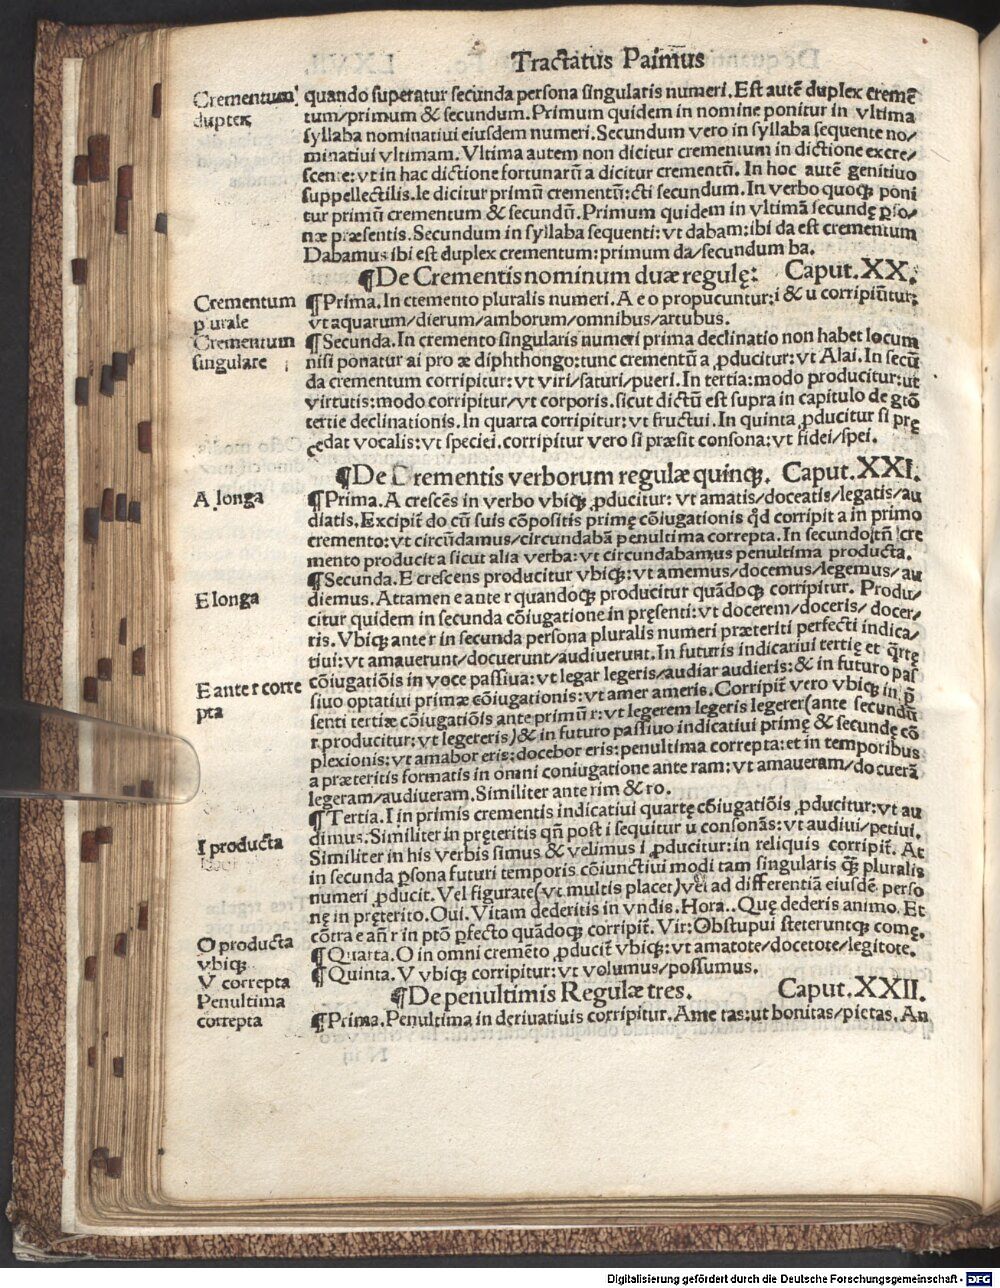 Tractatus Paimūs
Crementum
duplex
quando superatur secunda persona singularis numeri. Est autē duplex cremē
tum/primum & secundum. Primum quidem in nomine ponitur in vltima
syllaba nominatiui eiusdem numeri. Secundum vero in syllaba sequente no/
minatiui vltimam. Vltima autem non dicitur crementum in dictione excre/
scente: vt in hac dictione fortunarū a dicitur crementū. In hoc autē genitiuo
suppellectilis. le dicitur primū crementū: cti secundum. In verbo quoqꝫ poni
tur primū crementum & secundū. Primum quidem in vltimā secundę ꝑso/
næ præsentis. Secundum in syllaba sequenti: vt dabam: ibi da est crementum
Dabamus ibi est duplex crementum: primum da/secundum ba.
¶De Crementis nominum duæ regulę: Caput. XX.
Crementum
plurale
¶Prima. In cremento pluralis numeri. A e o propucuntur: i & u corripiūtur:
vt aquarum/dierum/amborum/omnibus/artubus.
Crementum
singulare
¶Secunda. In cremento singularis numeri prima declinatio non habet locum
nisi ponatur ai pro æ diphthongo: tunc crementū a ꝓducitur: vt Alai. In secū
da crementum corripitur: vt viri/saturi/pueri. In tertia: modo producitur: ut
virtutis: modo corripitur/vt corporis. sicut dictū est supra in capitulo de gtō
tertie declinationis. In quarta corripitur: vt fructui. In quinta ꝓducitur si prę
cedat vocalis: vt speciei. corripitur vero si præsit consona: vt fidei/spei.
¶De Crementis verborum regulæ quinqꝫ. Caput. XXI.
A longa
¶Prima. A crescēs in verbo vbiqꝫ ꝓducitur: vt amatis/doceatis/legatis/au
diatis. Excipit̄ do cū suis cōpositis primę cōiugationis qd̄ corripit a in primo
cremento: vt circūdamus/circundabā penultima correpta. In secundo tn̄ cre
mento producit a sicut alia verba: vt circundabamus penultima producta.
E longa
¶Secunda. E crescens producitur vbiqꝫ: vt amemus/docemus/legemus/au
diemus. Attamen e ante r quandoqꝫ producitur quādoqꝫ corripitur. Produ/
citur quidem in secunda cōiugatione in pręsenti: vt docerem/doceris/docer/
tis. Vbiqꝫ ante r in secunda persona pluralis numeri præteriti perfecti indica/
tiui: vt amauerunt/docuerunt/audiuerunt. In futuris indicatiui tertię et q̄rtę
cōiugatiōis in voce passiua: vt legar legeris/audiar audieris: & in futuro pas
E ante r corre
pta
siuo optatiui primæ cōiugationis: vt amer ameris. Corripit̄ vero vbiqꝫ in p̄
senti tertiæ cōiugatiōis ante primū r: vt legerem legeris legerer (ante secundū
r producitur: vt legereris) & in futuro passiuo indicatiui primę & secundę cō
plexionis: vt amabor eris: docebor eris: penultima correpta: et in temporibus
a præteritis formatis in omni coniugatione ante ram: vt amaueram/docuerā
legeram/audiueram. Similiter ante rim & ro.
I producta
¶Tertia. I in primis crementis indicatiui quartę cōiugatiōis ꝓducitur: vt au
dimus. Similiter in pręteritis qn̄ post i sequitur u consonās: vt audiui/petiui.
Similiter in his verbis simus & velimus i ꝓducitur: in reliquis corripit̄. At
in secunda ꝑsona futuri temporis cōiunctiui modi tam singularis qꝫ̄ pluralis
numeri ꝓducit. Vel figurate (vt multis placet) vel ad differentiā eiusdē perso
nę in pręterito. Oui. Vitam dederitis in vndis. Hora.. Quę dederis animo. Et
cōtra e an̄ r in ptō ꝑfecto quādoqꝫ corripit̄. Vir: Obstupui steteruntqꝫ comę.
O producta
vbiqꝫ
¶Quarta. O in omni cremēto ꝓducit̄ vbiqꝫ: vt amatote/docetote/legitote.
V correpta
¶Quinta. V vbiqꝫ corripitur: vt volumus/possumus.
¶De penultimis Regulæ tres. Caput. XXII.
Penultima
correpta
¶Prima. Penultima in deriuatiuis corripitur. Ame tas: ut bonitas/pietas. An
Digitalisierung gefördert durch die Deutsche Forschungsgemeinschaft - DFG